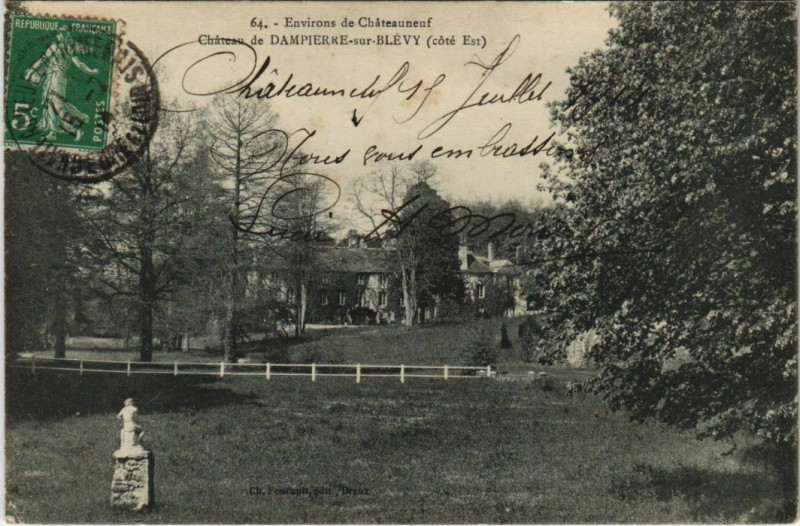 REPUBLIQUE FRANÇAISE
5c
POSTES
64. - Environs de Châteauneuf
Château de DAMPIERRE-sur-BLÉVY (côté Est)
Châteauneuf 15 Juillet
Nous vous embrassons
Ch. Foucault, édit., Dreux